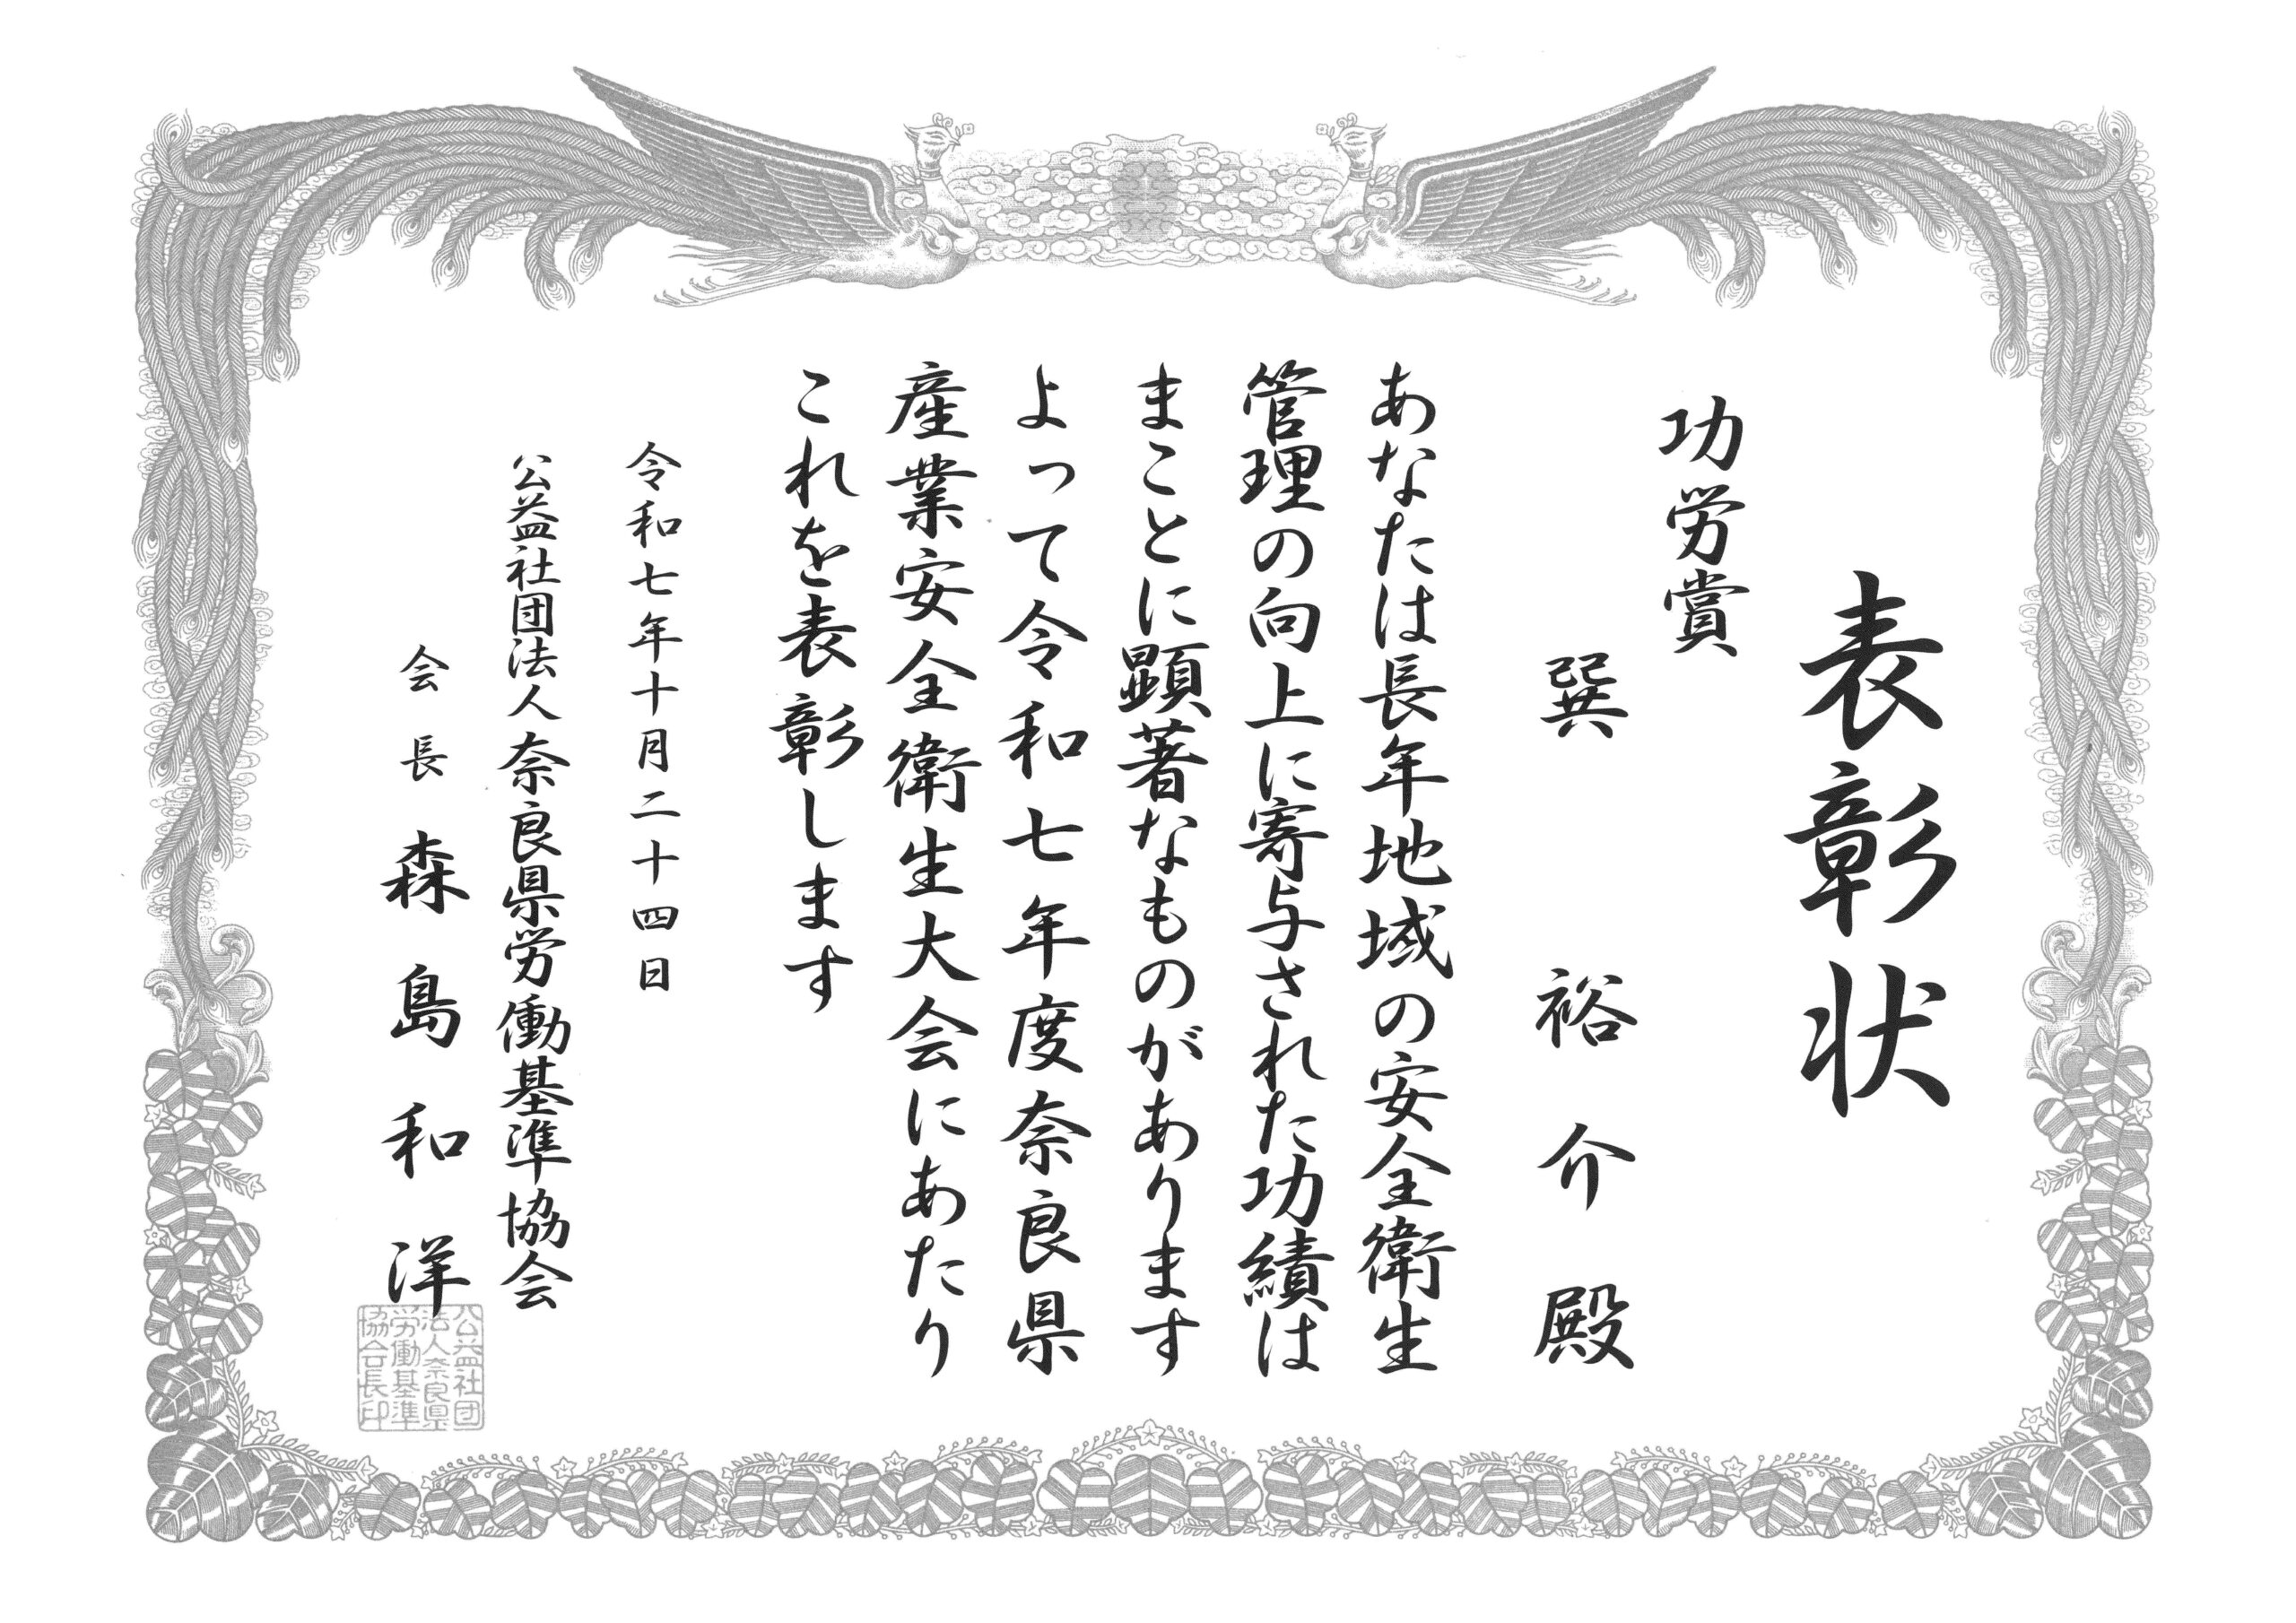 表彰状
功労賞
巽 裕介殿
あなたは長年地域の安全衛生
管理の向上に寄与された功績は
まことに顕著なものがあります
よって令和七年度奈良県
産業安全衛生大会にあたり
これを表彰します
令和七年十月二十四日
公益社団法人奈良県労働基準協会
会長 森島和洋
公益社団
法人奈良県
労働基準
協会長印